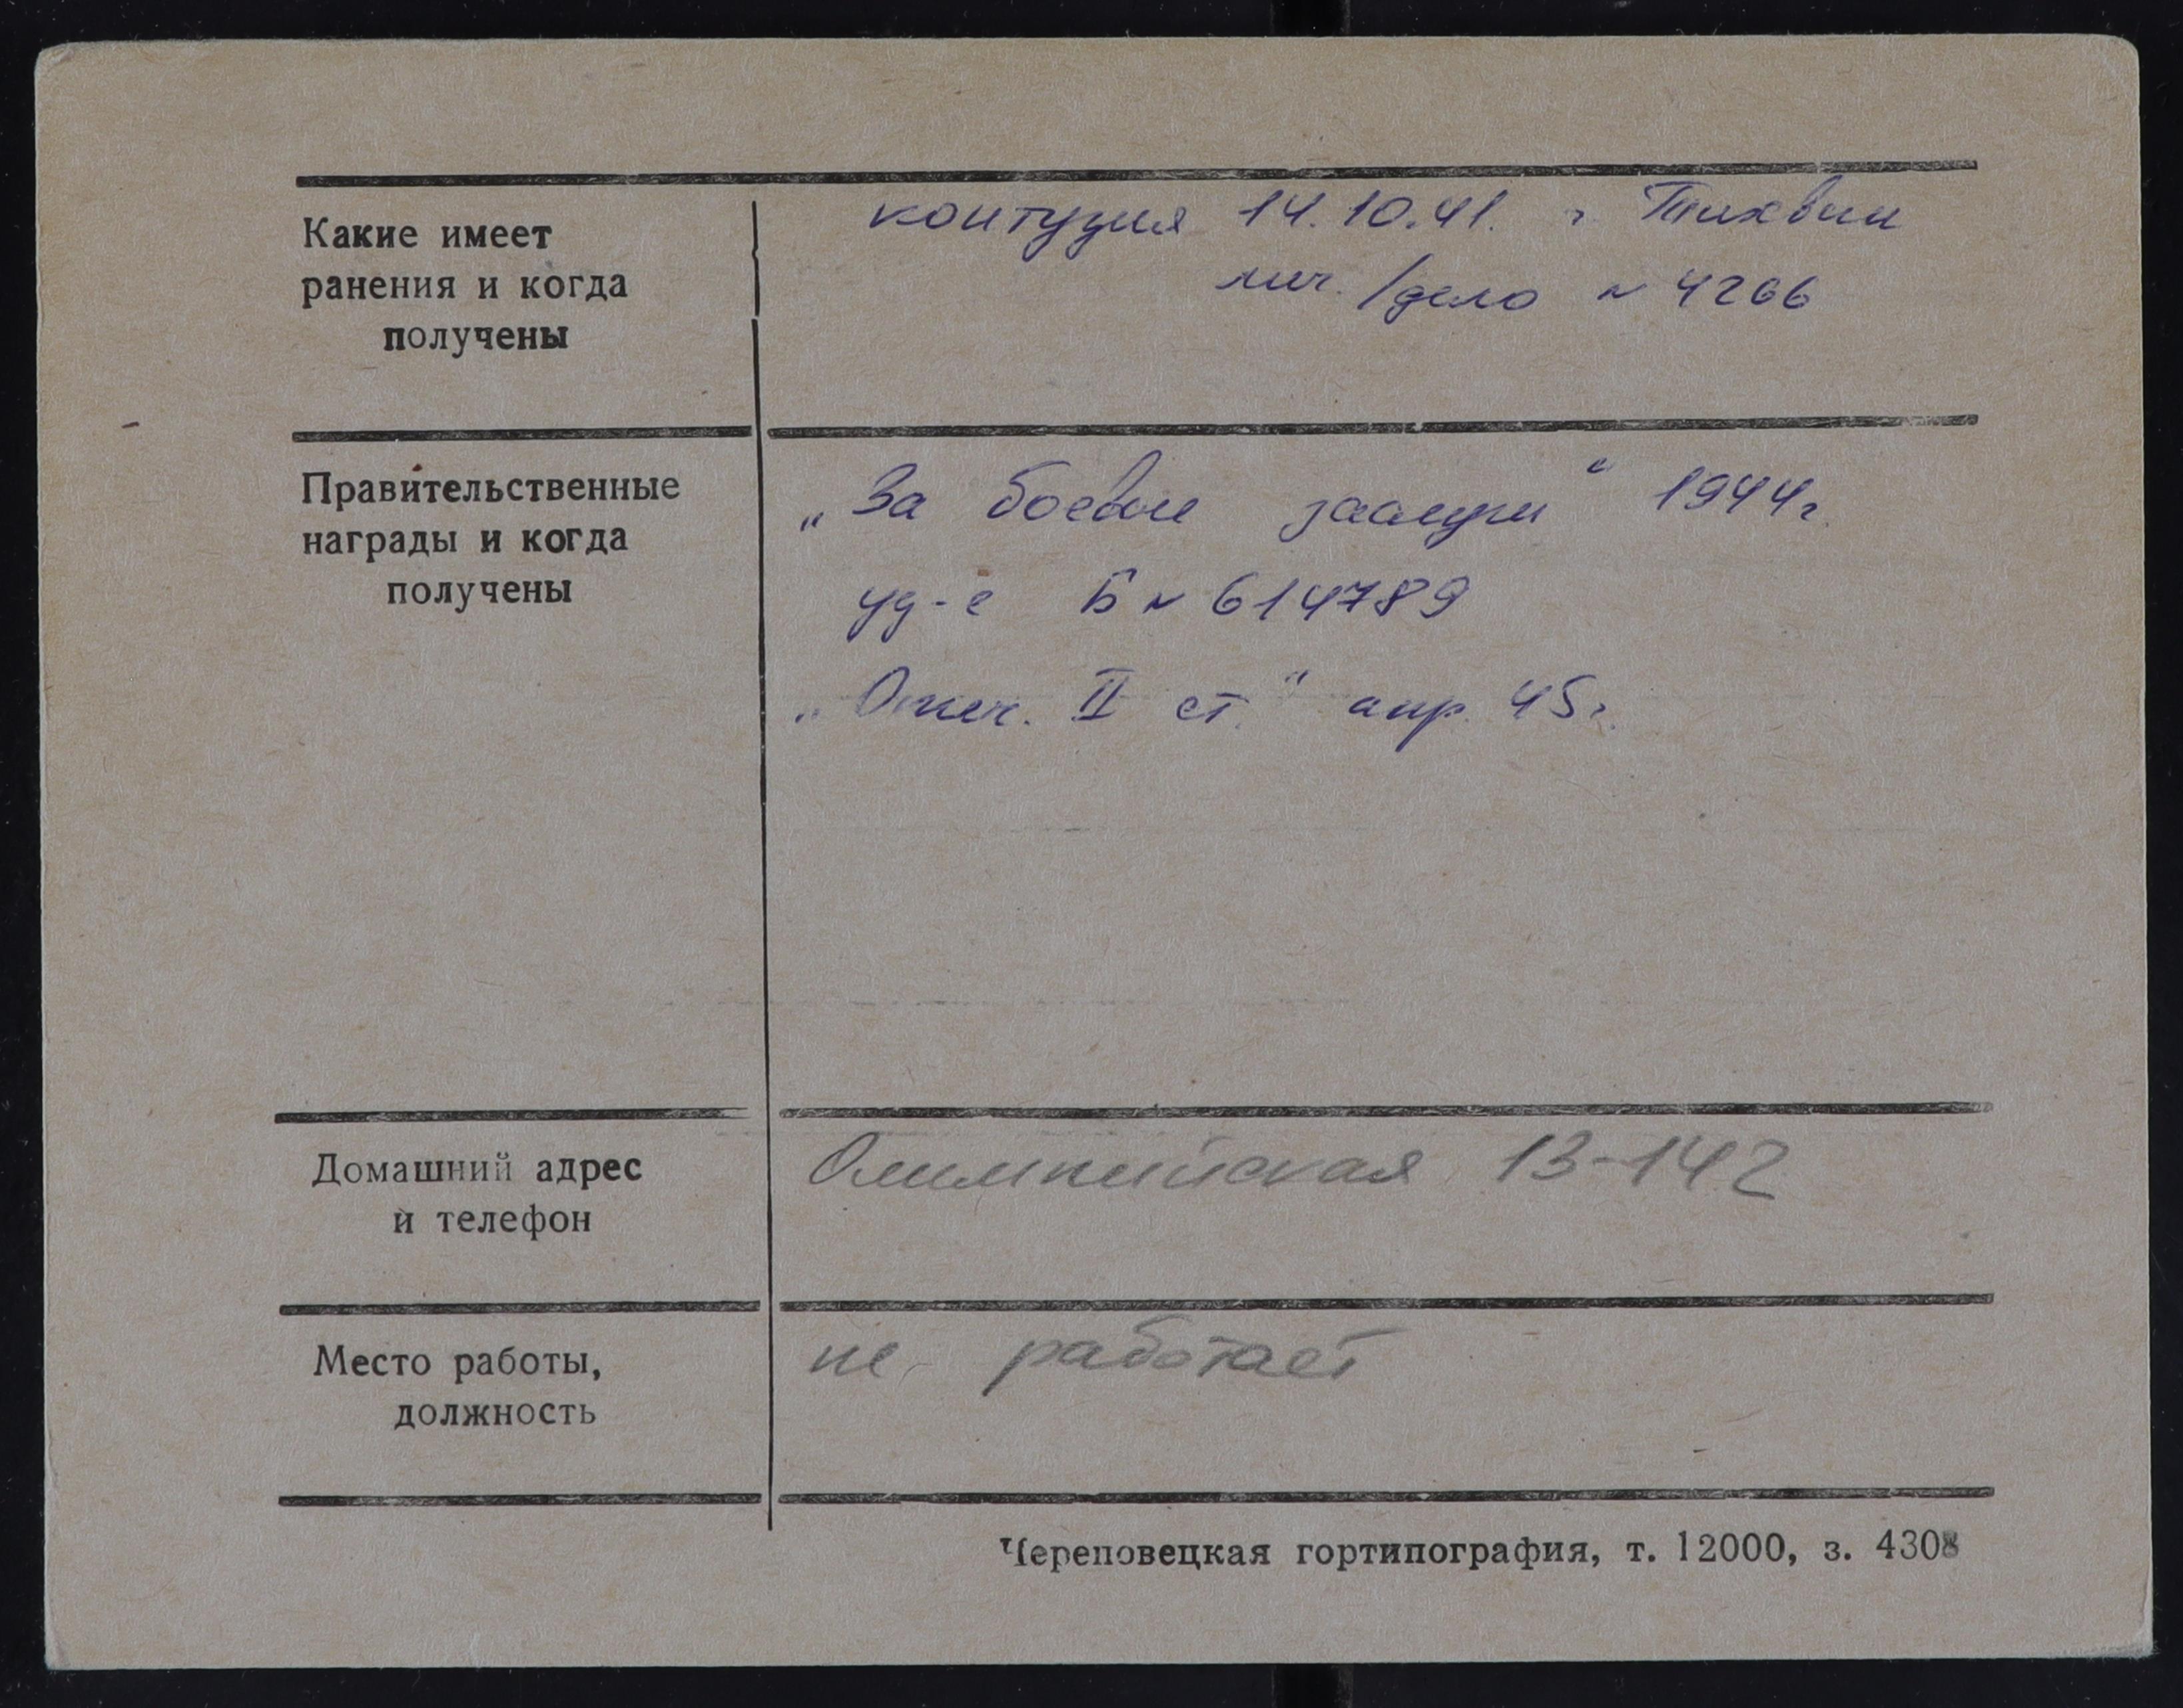 Какие имеет
ранения и когда
получены
контузия 14.10.41. г Тихвин
лич./дело № 4266
Правительственные
награды и когда
получены
„За боевые заслуги“ 1944г.
уд-е Б № 614789
„Отеч. II ст.“ апр. 45г.
Домашний адрес
и телефон
Олимпийская 13-142
Место работы,
должность
не работает
Череповецкая гортипография, т. 12000, з. 4308